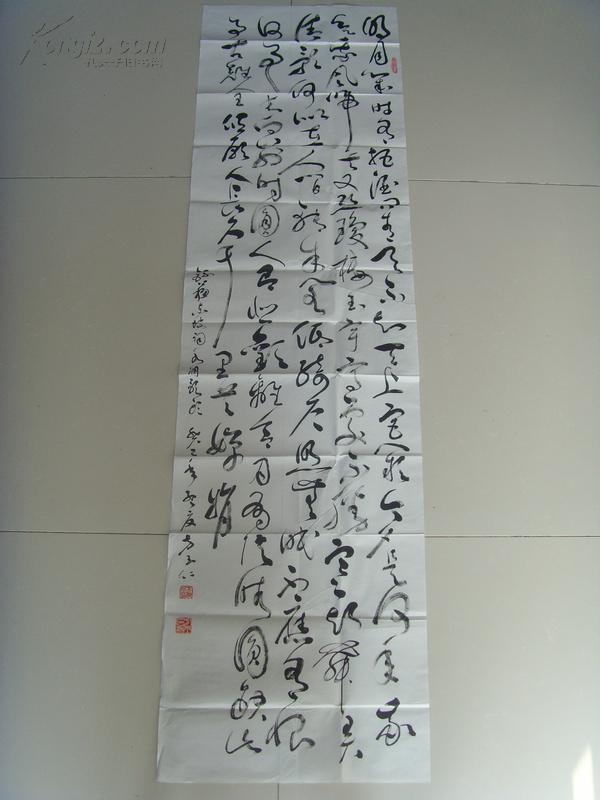 明月几时有把酒问青天不知天上宫阙今夕是何年我
欲乘风归去又恐琼楼玉宇高处不胜寒起舞弄
清影何似在人间转朱阁低绮户照无眠不应有恨
何事长向别时圆人有悲欢离合月有阴晴圆缺此
事古难全但愿人长久千里共婵娟
苏东坡词水调歌头 癸巳年
kongfz.com
孔夫子旧书网